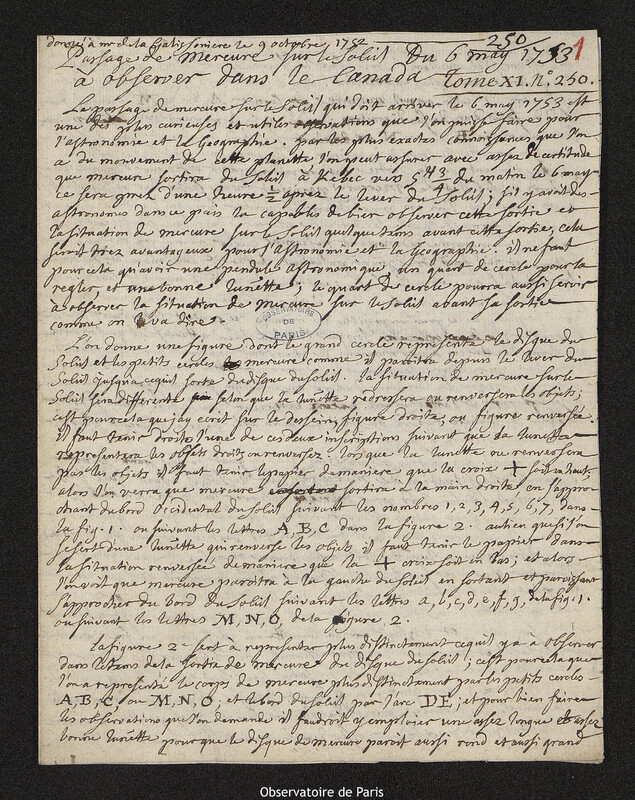 donné à mr de la Galissoniere le 9 octobre 1752
250
Passage de Mercure sur le Soleil Du 6 may 1753
1
à observer dans le Canada
Tome XI. n.° 250.
Le passage de mercure sur le Soleil qui doit arriver le 6 may 1753 est
une des plus curieuses et utiles observations que l'on puisse faire pour
l'astronomie et la Geographie. par les plus exactes connoissances que l'on
a du mouvement de cette planette l'on peut assurer avec assez de certitude
que mercure sortira du Soleil à Kebec vers 5 H 3/4 du matin le 6 may
ce sera prez d'une heure 1/2 aprez le lever du Soleil; s'il y avoit des
astronomes dans ce païs la capables de bien observer cette sortie et
la situation de mercure sur le Soleil quelque tems avant cette sortie, cela
seroit trez avantageux pour l'Astronomie et la Geographie. il ne faut
pour cela qu'avoir une pendule astronomique, un quart de cercle pour la
regler, et une bonne lunette; le quart de cercle pourra aussi servir
à observer la situation de mercure sur le Soleil avant sa sortie
comme on le va dire.
OBSERVATOIRE
DE
PARIS
L'on donne une figure dont le grand cercle represente le disque du
Soleil et les petits cercles mercure comme il paroitra depuis le lever du
Soleil jusqu'a ce qu'il sorte du disque du Soleil. la situation de mercure sur le
Soleil sera differente selon que la lunette redressera ou renversera les objets;
c'est pour cela que j'ay ecrit sur le dessein, figure droite, ou figure renversée.
il faut tenir droite l'une de ces deux inscriptions suivant que la lunette
representera les objets droits ou renversez. lors que la lunette ne renversera
pas les objets il faut tenir le papier de maniere que la croix + soit en haut.
alors l'on verra que mercure sortira à la main droite en s'appro
chant du bord occidental du Soleil suivant les nombres 1, 2, 3, 4, 5, 6, 7, dans
la fig. 1. ou suivant les lettres A, B, C dans la figure 2. au lieu que si l'on
se sert d'une lunette qui renverse les objets il faut tenir le papier dans
la situation renversée de maniere que la + croix soit en bas; et alors
l'on voit que mercure paroitra à la gauche du Soleil en sortant et paroissant
s'approcher du bord du Soleil suivant les lettres a, b, c, d, e, f, g, de la fig. 1.
ou suivant les lettres M, N, O, de la figure 2.
La figure 2 sert à representer plus distinctement ce qu'il y a à observer
dans le tems de la sortie de mercure du disque du Soleil; c'est pour cela que
l'on a representé le corps de mercure plus distinctement par les petits cercles
A, B, C ou M, N, O; et le bord du Soleil par l'arc DE; et pour bien faire
les observations que l'on demande il faudroit y employer une assez longue et assez
bonne lunette pour que le disque de mercure paroit aussi rond et aussi grand
Observatoire de Paris